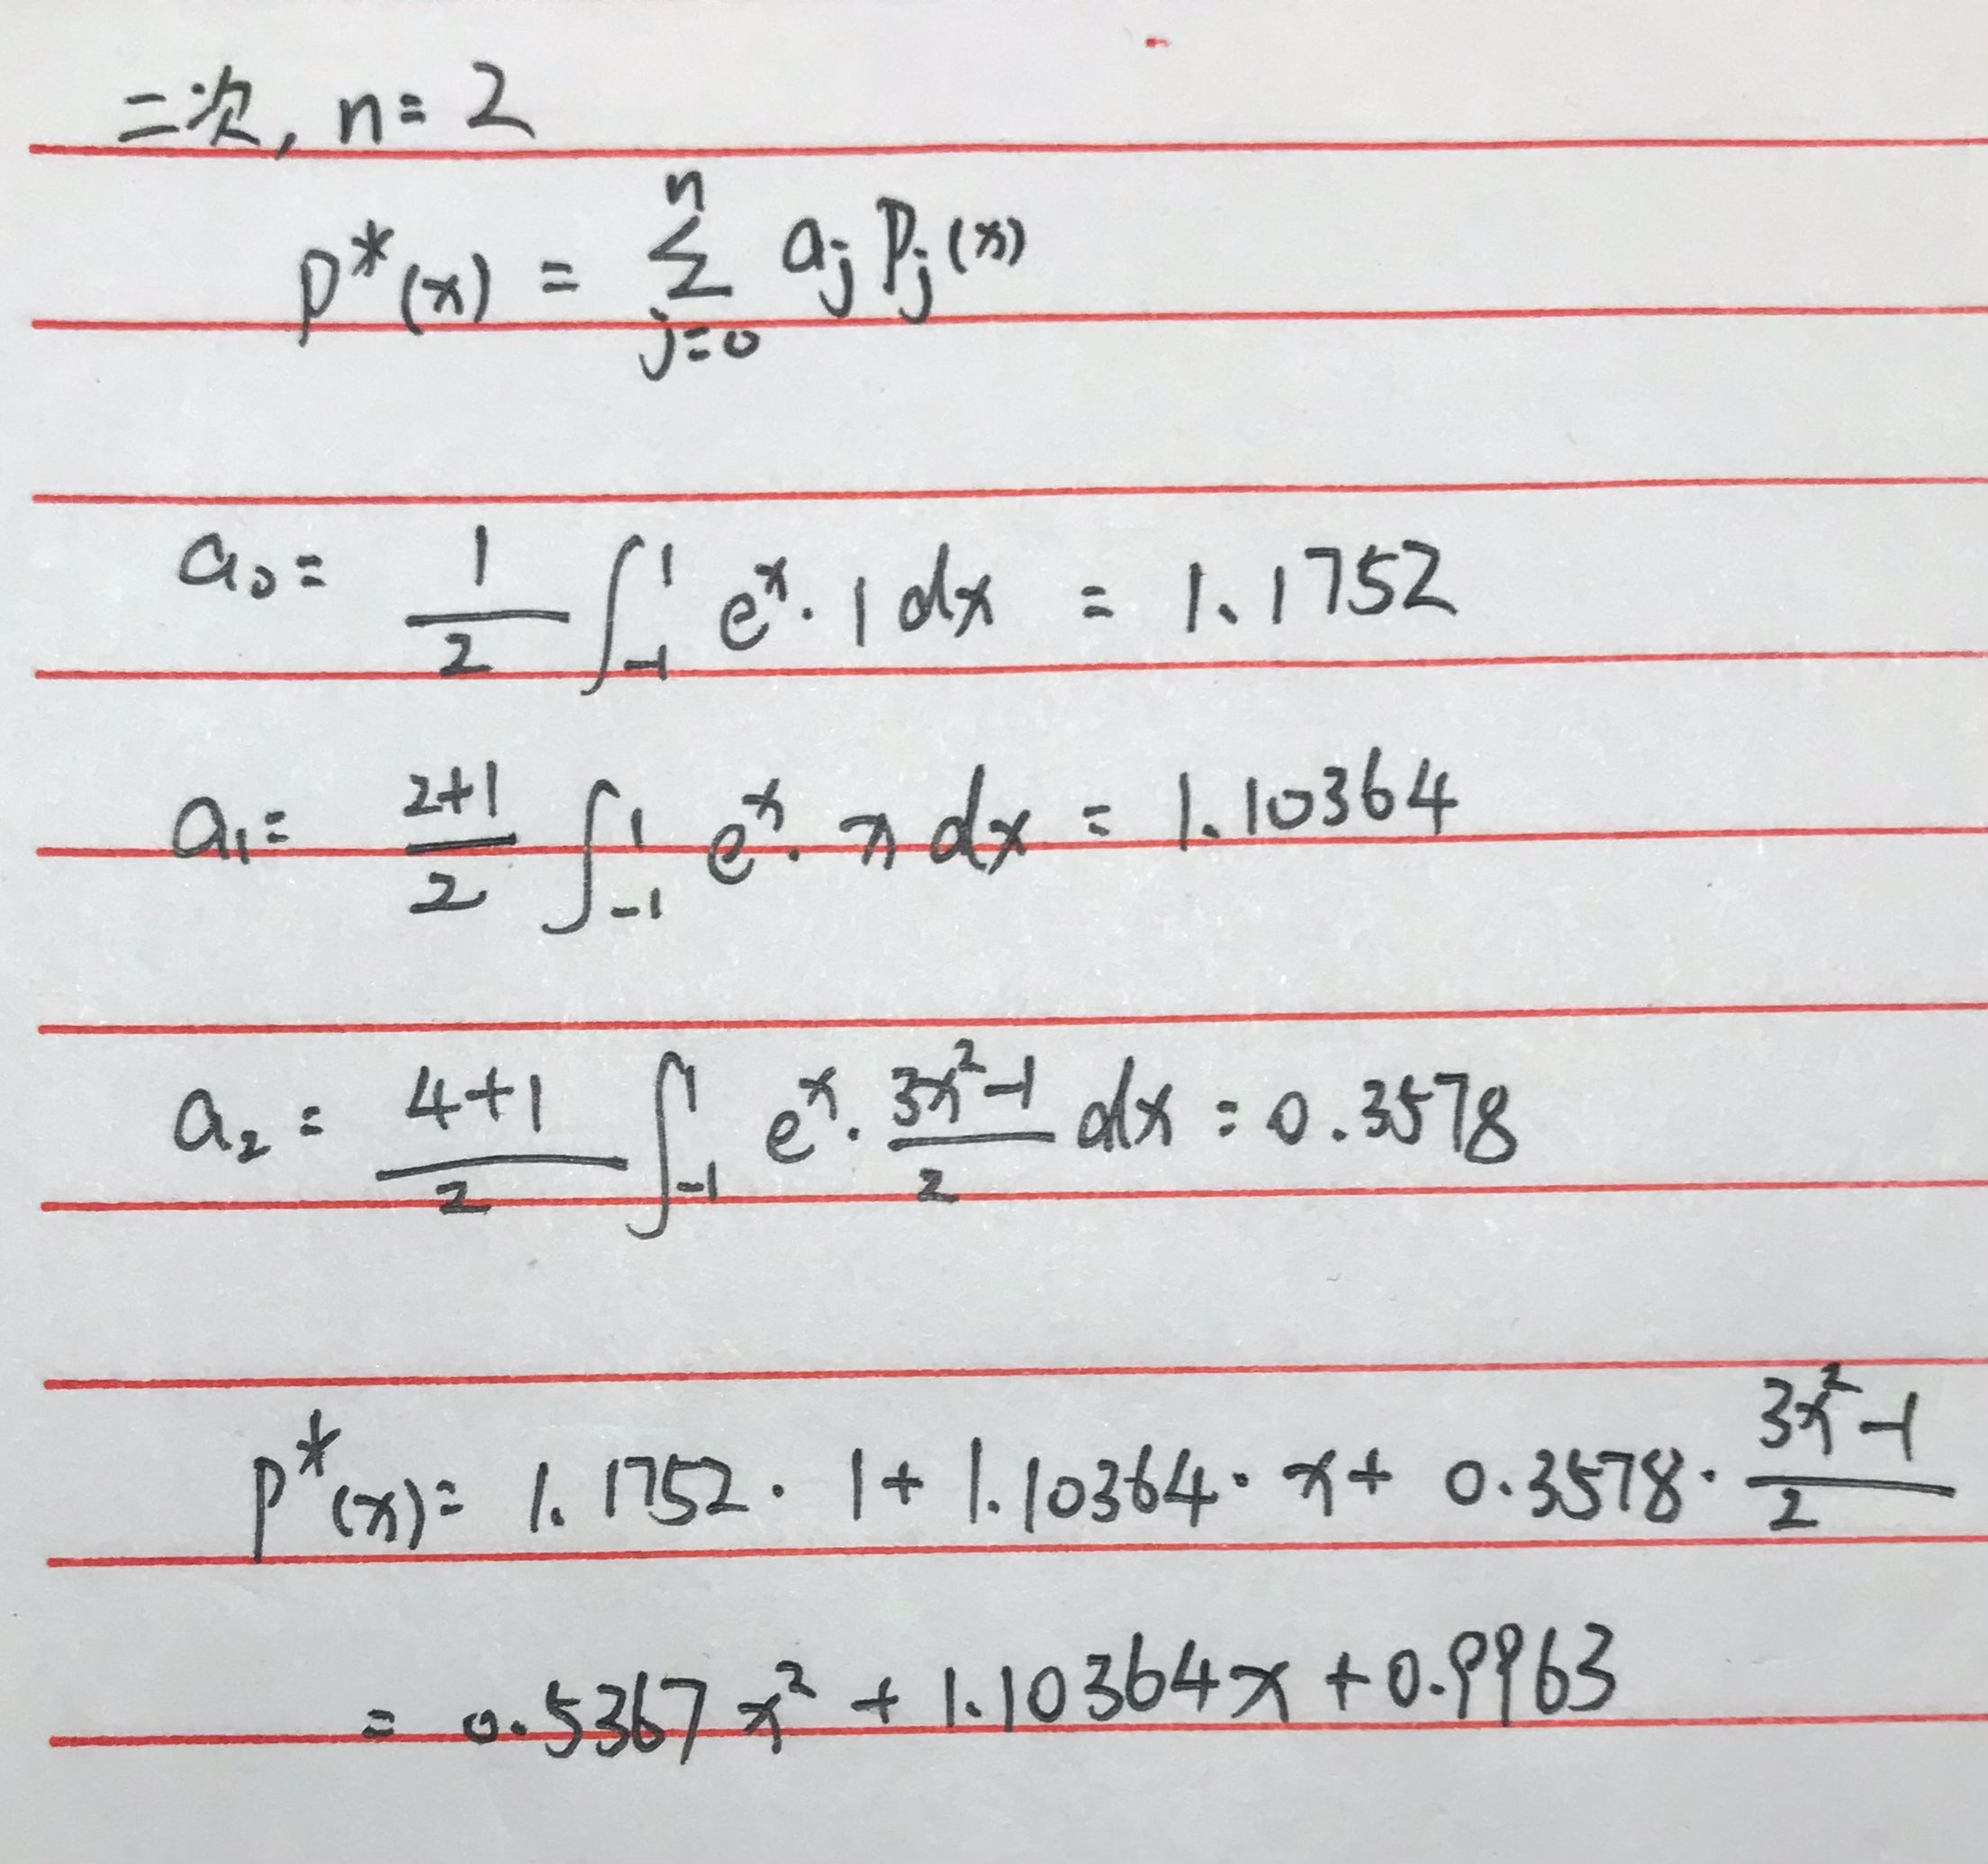 二次, n=2
p*(x) = ∑_{j=0}^{n} a_j P_j(x)
a₀= 1/2 ∫_{-1}^{1} eˣ·1dx = 1.1752
a₁= (2+1)/2 ∫_{-1}^{1} eˣ·x dx = 1.10364
a₂= (4+1)/2 ∫_{-1}^{1} eˣ·(3x²-1)/2 dx = 0.3578
p*(x)= 1.1752·1+1.10364·x+0.3578·(3x²-1)/2
= 0.5367x²+1.10364x+0.9963